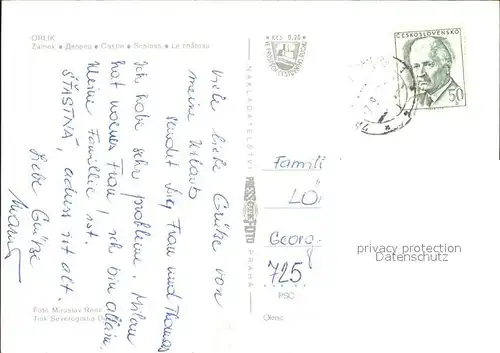 ORLÍK
Zámek • Дворец • Castle • Schloss • Le château
Viele liebe Grüße von
meine Urlaub
sendet Frau und Thomas
Ich habe sehr probleme. Milan
hat neues Frau! ich bin allein.
kleine Famillie ist.
ŠŤASTNÁ, adress ist alt.
Liebe Grüße
Foto Miroslav
Tisk Severografia
Kčs 0,20
NAKLADATELSTVÍ
PRESSFOTO
PRAHA
ČESKOSLOVENSKO
50
Famili
LÖ
Georg
725
PSČ
Okres
privacy protection
Datenschutz